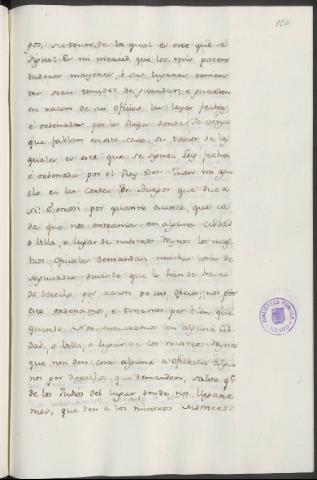 150
por, su tenor de la qual es este que se
sigue: Es mi merced, que los mis posen
tadores mayores, ó sus lugares tenien
tes sean tenudos de guardar, e guarden
en razon de sus oficios, las leyes fechas
é ordenadas por los Reyes donde Yo vengo
que fablan en este caso, su tenor de las
quales es este que se sigue. Ley fecha
e ordenada por el Rey Don Juan mi agu
elo en las Cortes de Burgos que dice a
si: E otrosi por quanto acaece, que ca
da que nos entramos en alguna cibdad
o Villa, o lugar de nuestros Reynos los nues
tros Oficiales demandan muchas cosas de
aguisadas diciendo que lo han de haver
de derecho por razon de sus oficios, nos por
esto ordenamos, e tenemos por bien que
quando Nos entraremos en alguna Cib
dad, o Villa, o lugar de los nuestros Reynos
que non den cosa alguna a oficiales algu
nos por derechos que demanden, salvo qe.
de los del lugar donde nos llegare
mos, que den a los nuestros
BIBLIOTECA PUBLICA
TOLEDO